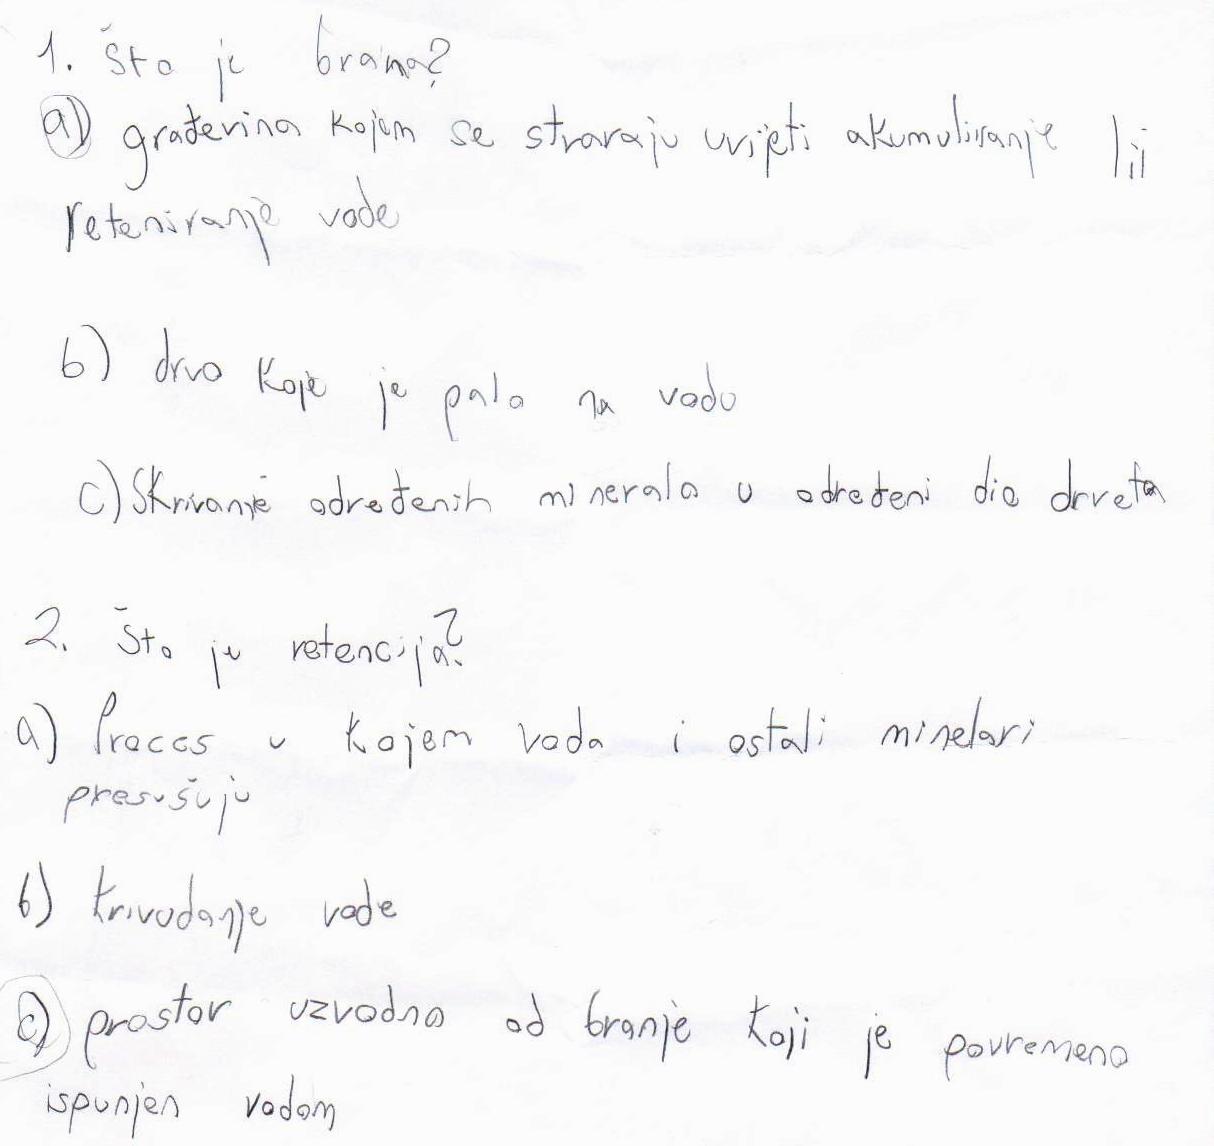 1. što je brana?
a) građevina kojom se stvaraju uvijeti akumuliranje ili
reteniranje vode
b) drvo koje je palo na vodu
c) Skrivanje određenih minerala u određeni dio drveta
2. što je retencija?
a) Proces u kojem voda i ostali minelari
presušuju
b) krivudanje vode
c) prostor uzvodno od branje koji je povremeno
ispunjen vodom